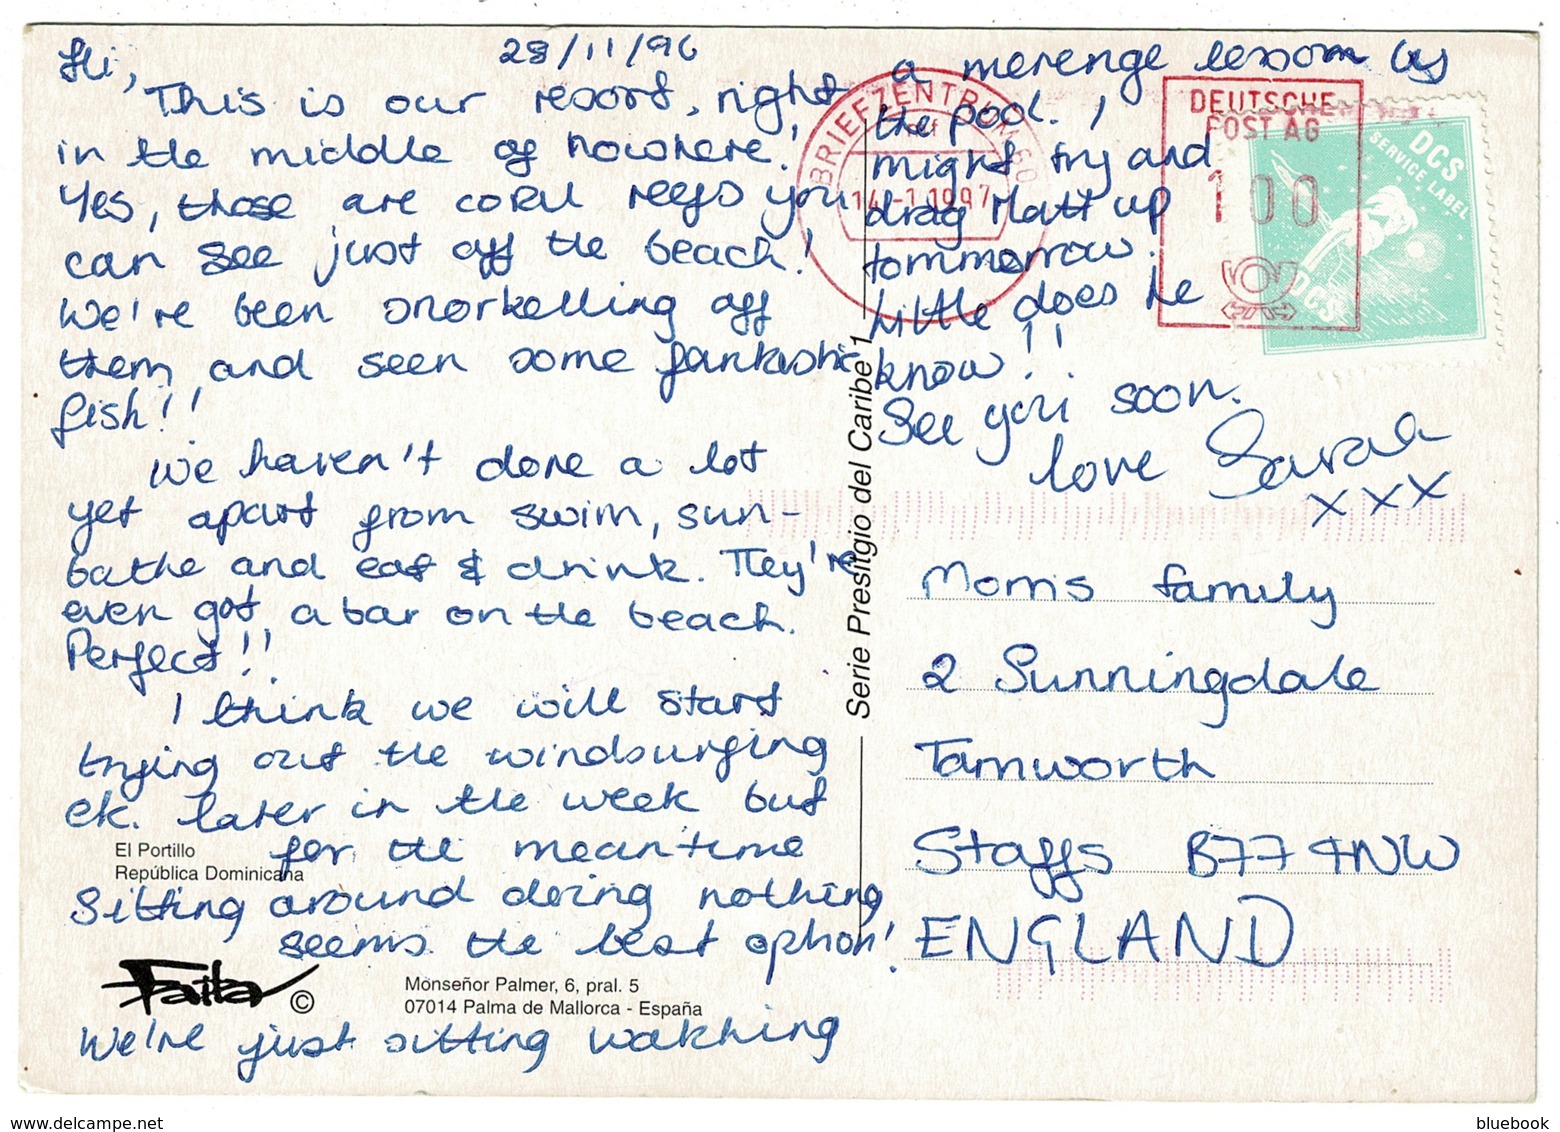 28/11/96
Hi,
This is our resort, right
in the middle of nowhere!
Yes, those are coral reefs you
can see just off the beach!
We're been snorkelling off
them and seen some fantastic
fish!!
We haven't done a lot
yet apart from swim, sun-
bathe and eat & drink. They're
even got a bar on the beach.
Perfect!!
I think we will start
trying out the windsurfing
etc. later in the week but
for the meantime
sitting around doing nothing
seems the best option!
We're just sitting watching
a merenge lesson by
the pool. I
might try and
drag Matt up
tommorrow.
Little does he
know!!
See you soon.
love Sarah
xxx
Morris family
2 Sunningdale
Tamworth
Staffs B77 4NW
ENGLAND
El Portillo
República Dominicana
Faita ©
Monseñor Palmer, 6, pral. 5
07014 Palma de Mallorca - España
Serie Prestigio del Caribe 1
BRIEFZENTRUM 60
14-1.1997
DEUTSCHE
POST AG
100
DCS
SERVICE LABEL
DCS
www.delcampe.net
bluebook